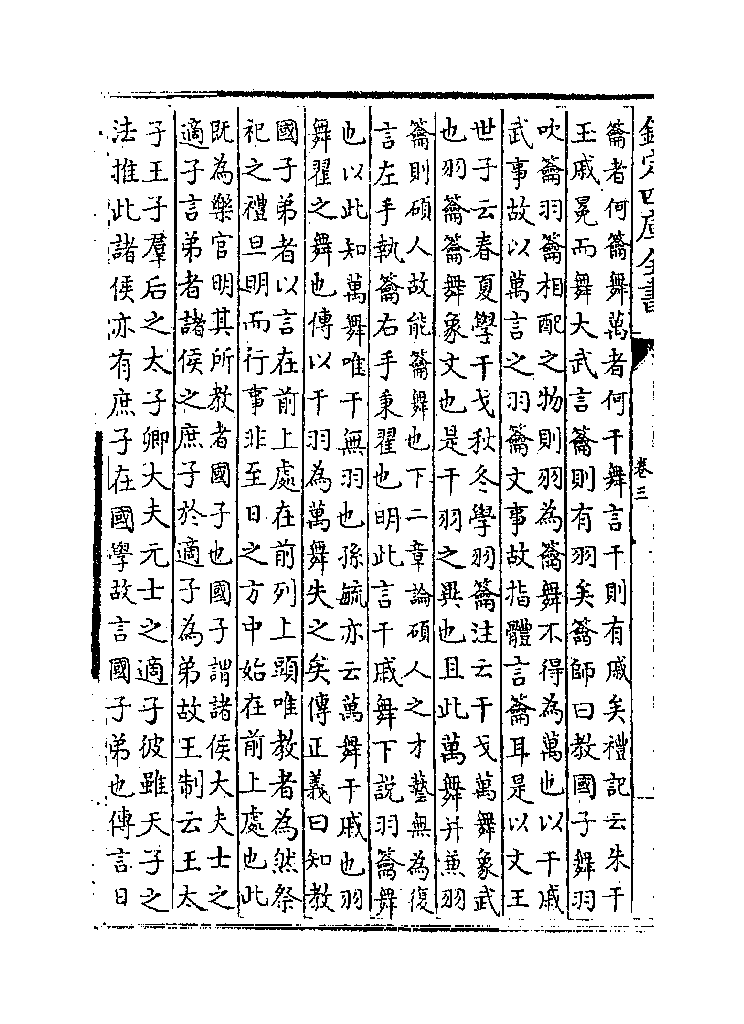 欽定四庫全書
卷三
籥者何籥舞萬者何干舞言干則有戚矣禮記云朱干
玉戚冕而舞大武言籥則有羽矣籥師曰教國子舞羽
吹籥羽籥相配之物則羽為籥舞不得為萬也以干戚
武事故以萬言之羽籥文事故指體言籥耳是以文王
世子云春夏學干戈秋冬學羽籥注云干戈萬舞象武
也羽籥籥舞象文也是干羽之異也且此萬舞并兼羽
籥則碩人故能籥舞也下二章論碩人之才藝無為復
言左手執籥右手秉翟也明此言干戚舞下説羽籥舞
也以此知萬舞唯干無羽也孫毓亦云萬舞干戚也羽
舞翟之舞也傳以干羽為萬舞失之矣傳正義曰知教
國子弟者以言在前上處在前列上頭唯教者為然祭
祀之禮旦明而行事非至日之方中始在前上處也此
既為樂官明其所教者國子也國子謂諸侯大夫士之
適子言弟者諸侯之庶子於適子為弟故王制云王太
子王子羣后之太子卿大夫元士之適子彼雖天子之
法推此諸侯亦有庶子在國學故言國子弟也傳言日